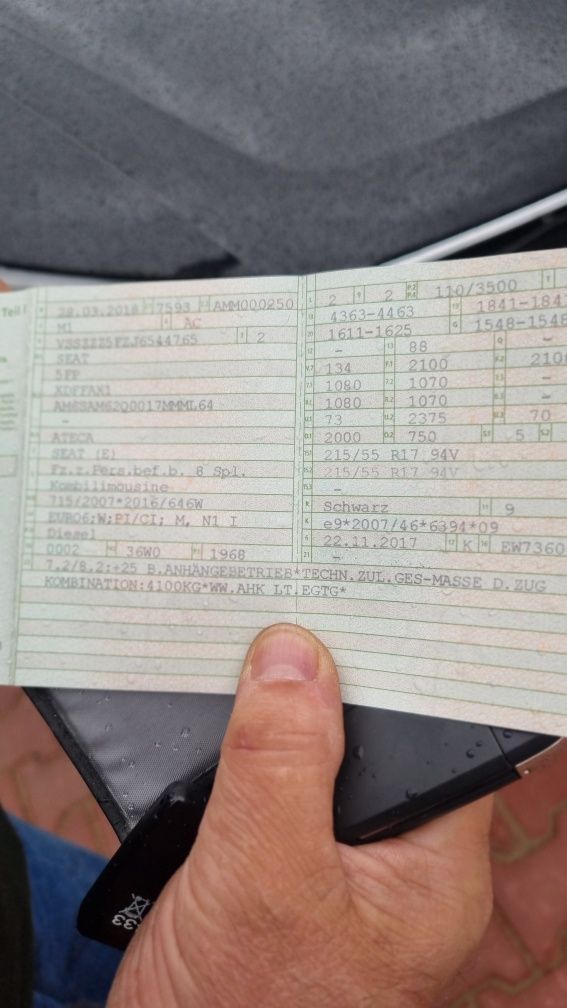 Teil I
28.03.2018 7593 AMM000250
M1 AC
VSSZZZ5FZJ6544765 2
SEAT
5FP
XDFFAX1
AM6SAM62Q0017MMML64
-
ATECA
SEAT (E)
Fz.z.Pers.bef.b. 8 Spl.
Kombilimousine
715/2007*2016/646W
EURO6;W;PI/CI; M, N1 I
Diesel
0002 36W0 1968
7.2/8.2:+25 B.ANHÄNGEBETRIEB*TECHN.ZUL.GES-MASSE D.ZUG
KOMBINATION:4100KG*WW.AHK LT.EGTG*
2 2 110/3500
4363-4463 1841-184
1611-1625 1548-1548
- 88 -
134 2100 210
1080 1070 -
1080 1070 -
73 2375 70
2000 750 5
215/55 R17 94V
215/55 R17 94V
-
Schwarz 9
e9*2007/46*6394*09
22.11.2017 K EW7360
-